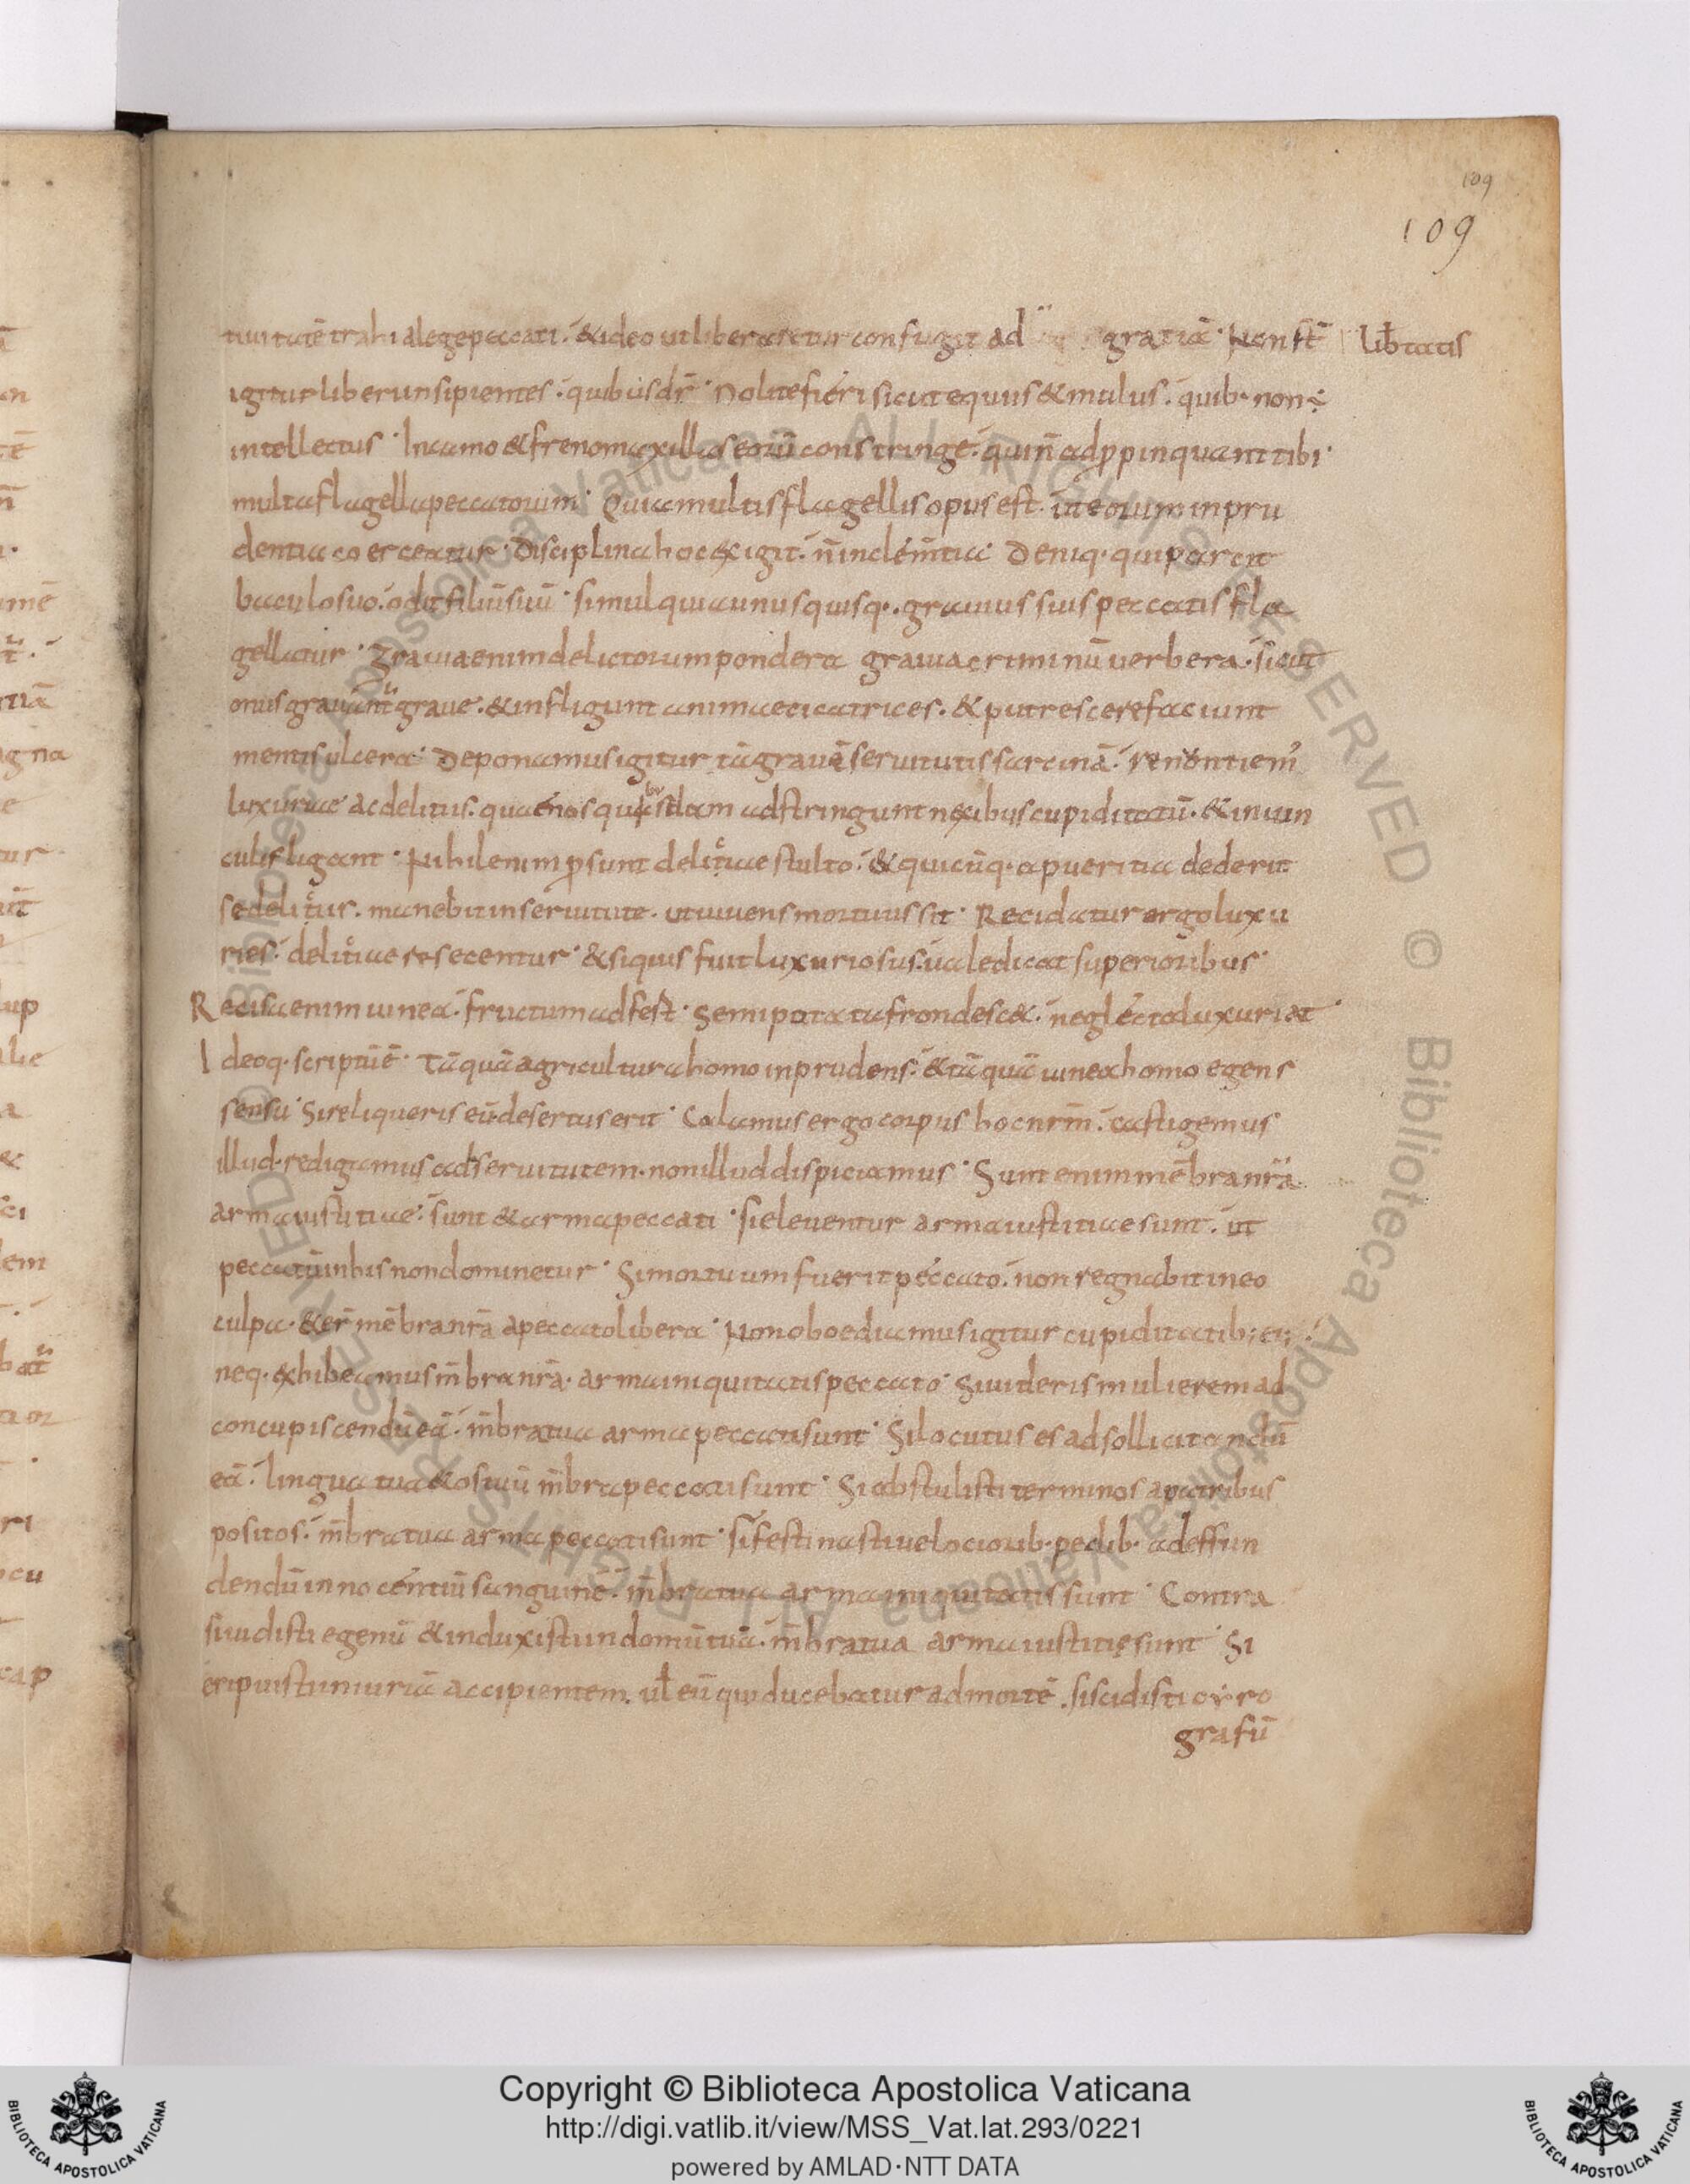 109
109
tiuitatē trahi a lege peccati. & ideo ut liberaretur confugit ad gratiā. Non st̄ lib̄tatis
igitur liberi insipientes. quibus dr̄. Nolite fieri sicut equus & mulus. quib. non ÷
intellectus. In camo & freno maxillas eorū constringe. qui n̄ adp̱pinquant tibi.
multa flagella peccatorum. Quia multis flagellis opus est. ut eorum inpru
dentia coerceatur. Disciplina hoc exigit. n̄ inclem̄tia. Deniq. qui parcit
baculo suo. odit filiū suū. simul quia unusquisq. grauius suis peccatis fla
gellatur. Grauia enim delictorum pondera grauia criminū uerbera. sicut
onus grauant graue. & infligunt animae cicatrices. & putrescere faciunt
mentis ulcera. Deponamus igitur tā grauē seruitutis sarcinā. renontiem'
luxuriae ac delitiis. quae nos quibusdam adstringunt nexibus cupiditatū. & inuin
culis ligant. Nihil enim p̱sunt delitiae stulto. & quicūq. a pueritia dederit
se delitiis. maneb̄it in seruitute. ut uiuens mortuus sit. Recidatur ergo luxu
ries. delitiae resecentur. & si quis fuit luxuriosus. ualedicat superioribus.
Recisa enim uinea. fructum adfert. Semiputata frondesc&. neglecta luxuriat.
Ideoq. scriptū ē. Tāquā agricultura homo inprudens. & tāquā uinea homo egens
sensu. Si reliqueris eū desertus erit. Colamus ergo corpus hoc nr̄m. castigemus
illud. redigamus ad seruitutem. non illud dispiciamus. Sunt enim mēbra nr̄a
arma iustitiae. sunt & arma peccati. si eleuentur arma iustitiae sunt. ut
peccatū in his non dominetur. Si mortuum fuerit peccato. non regnabit in eo
culpa. & er̄ mēbra nr̄a a peccato libera. Non oboediamus igitur cupiditatib; ei;
neq. exhibeamus m̄bra nr̄a. arma iniquitatis peccato. Si uideris mulierem ad
concupiscendū eā. m̄bra tua arma peccati sunt. Si locutus es ad sollicitandū
eā. lingua tua & os tuū m̄bra peccati sunt. Si abstulisti terminos a patribus
positos. m̄bra tua arma peccati sunt. si festinasti uelociorib. pedib. ad effun
dendū innocentiū sanguinē. m̄bra tua arma iniquitatis sunt. Contra
si uidisti egenū & induxisti in domū tuā. m̄bra tua arma iustitię sunt. Si
eripuisti iniuriā accipientem. ul̄ eū qui ducebatur ad mortē. si scidisti cyro
grafū
Copyright © Biblioteca Apostolica Vaticana
http://digi.vatlib.it/view/MSS_Vat.lat.293/0221
powered by AMLAD·NTT DATA